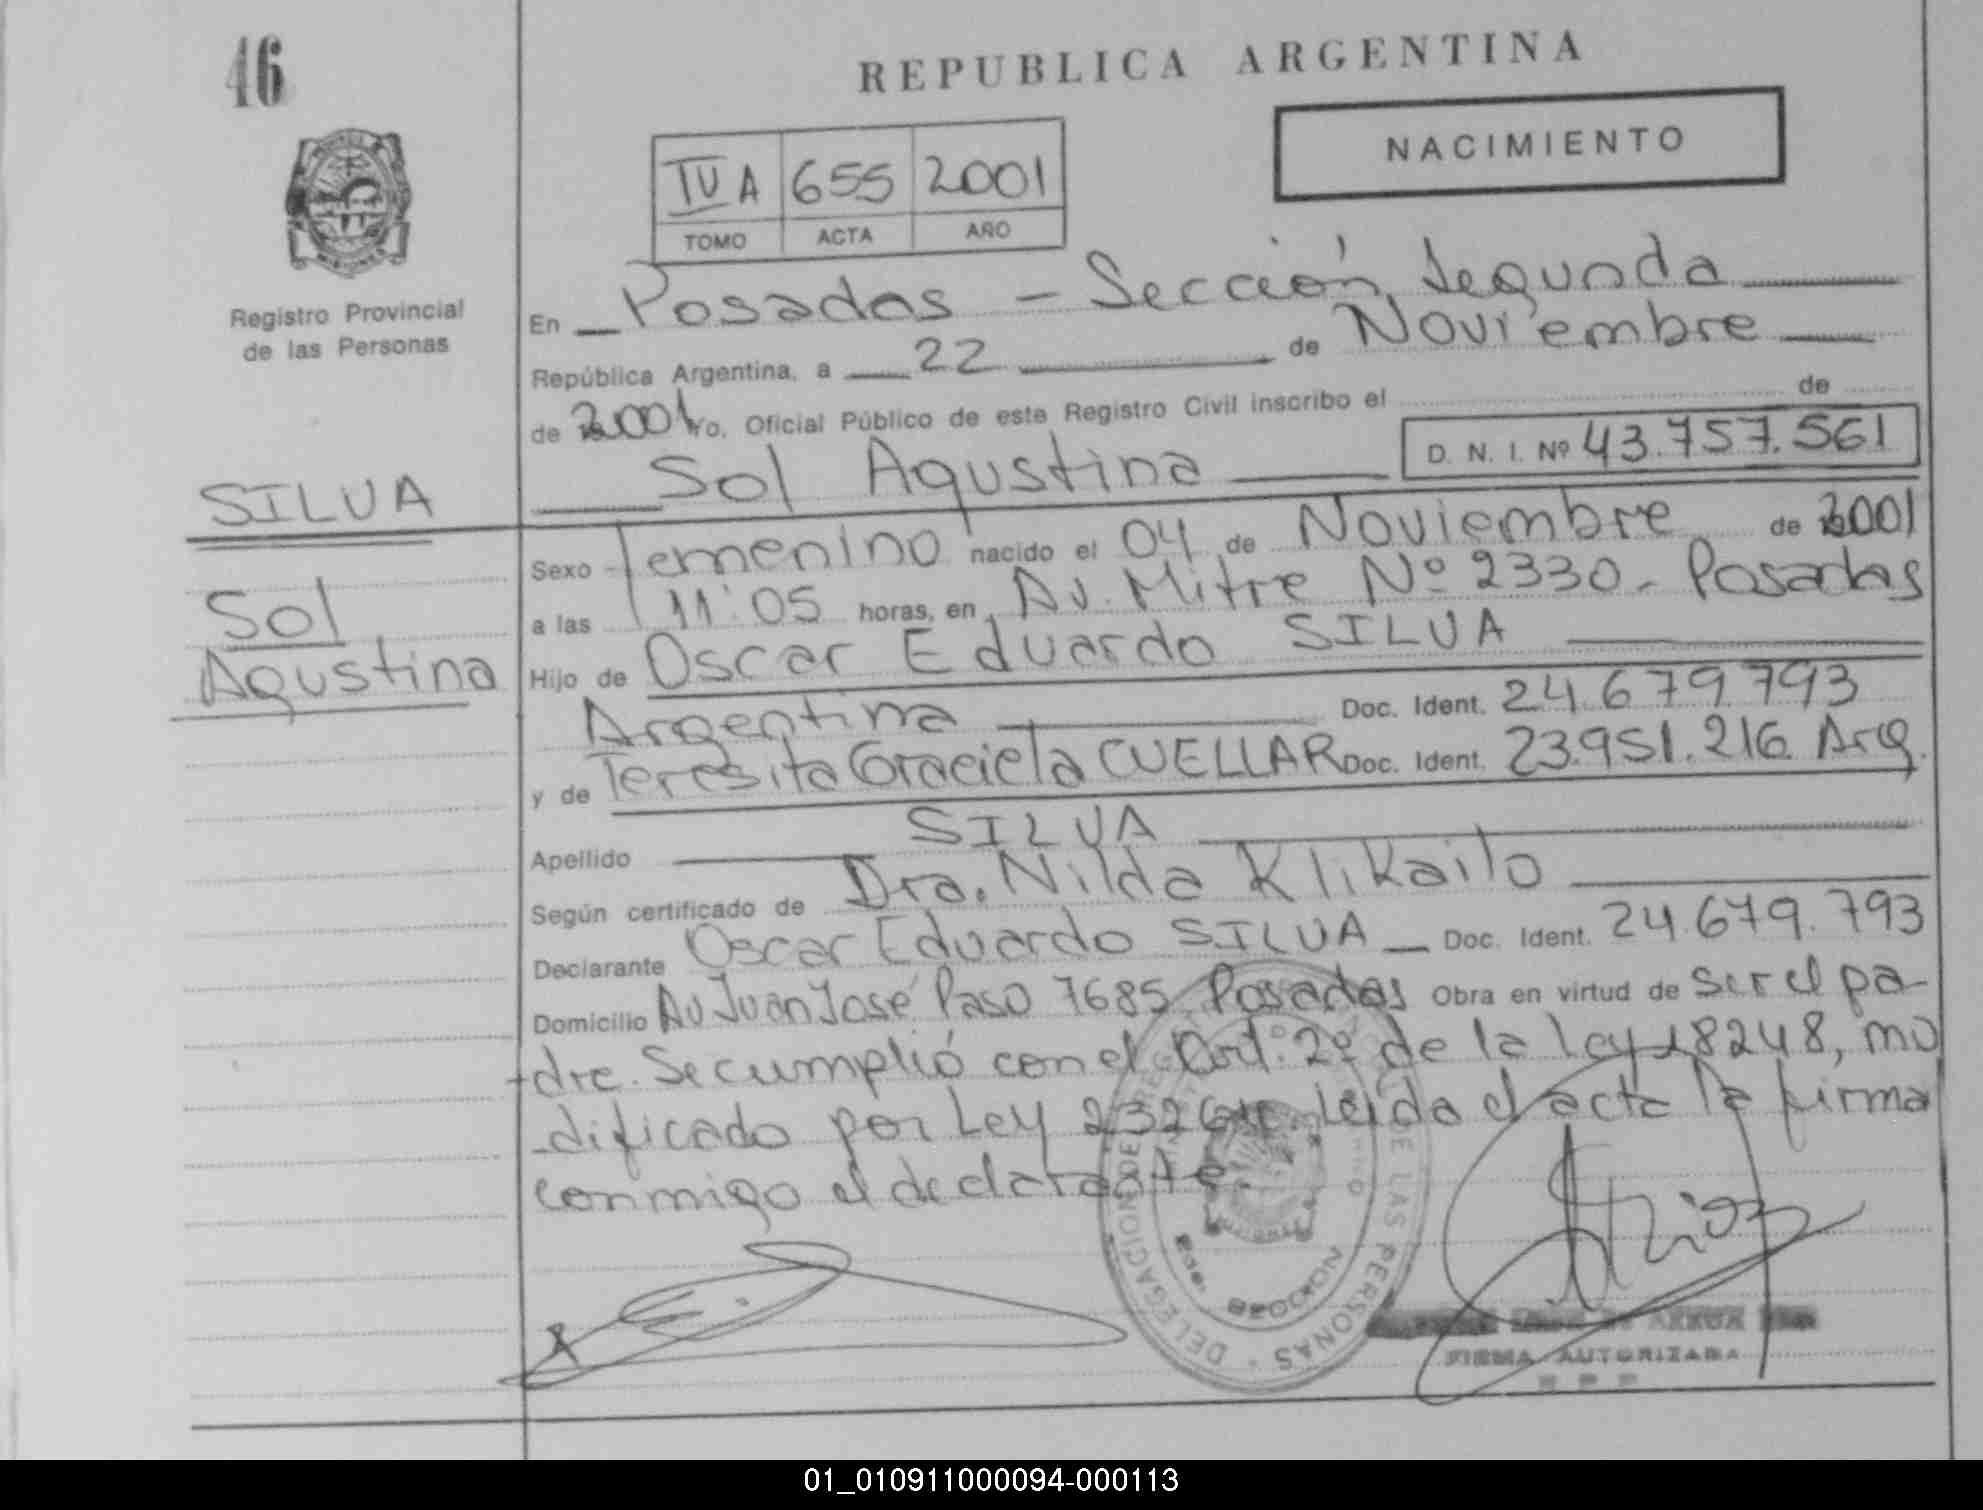 46
REPUBLICA ARGENTINA
NACIMIENTO
IV A 655 2001
TOMO ACTA AÑO
MISIONES
Registro Provincial
de las Personas
En Posadas - Sección Segunda
República Argentina, a 22 de Noviembre
de 2001 Yo, Oficial Público de este Registro Civil inscribo el de
D. N. I. Nº 43.757.561
Sol Agustina
SILVA
Sol
Agustina
Sexo Femenino nacido el 04 de Noviembre de 2001
a las 11:05 horas, en Av. Mitre Nº 2330 - Posadas
Hijo de Oscar Eduardo SILVA
Argentina Doc. Ident. 24.679.793
y de Teresita Graciela CUELLAR Doc. Ident. 23.951.216 Arg.
Apellido SILVA
Según certificado de Dra. Nilda Klikailo
Declarante Oscar Eduardo SILVA Doc. Ident. 24.679.793
Domicilio Av Juan José Paso 7685 Posadas Obra en virtud de ser el pa-
dre. Se cumplió con el Art. 2º de la Ley 18248, mo
dificado por Ley Leída el acta la firma
conmigo el declarante.
DELEGACION DE LAS PERSONAS
SECCION
FIRMA AUTORIZADA
01_010911000094-000113